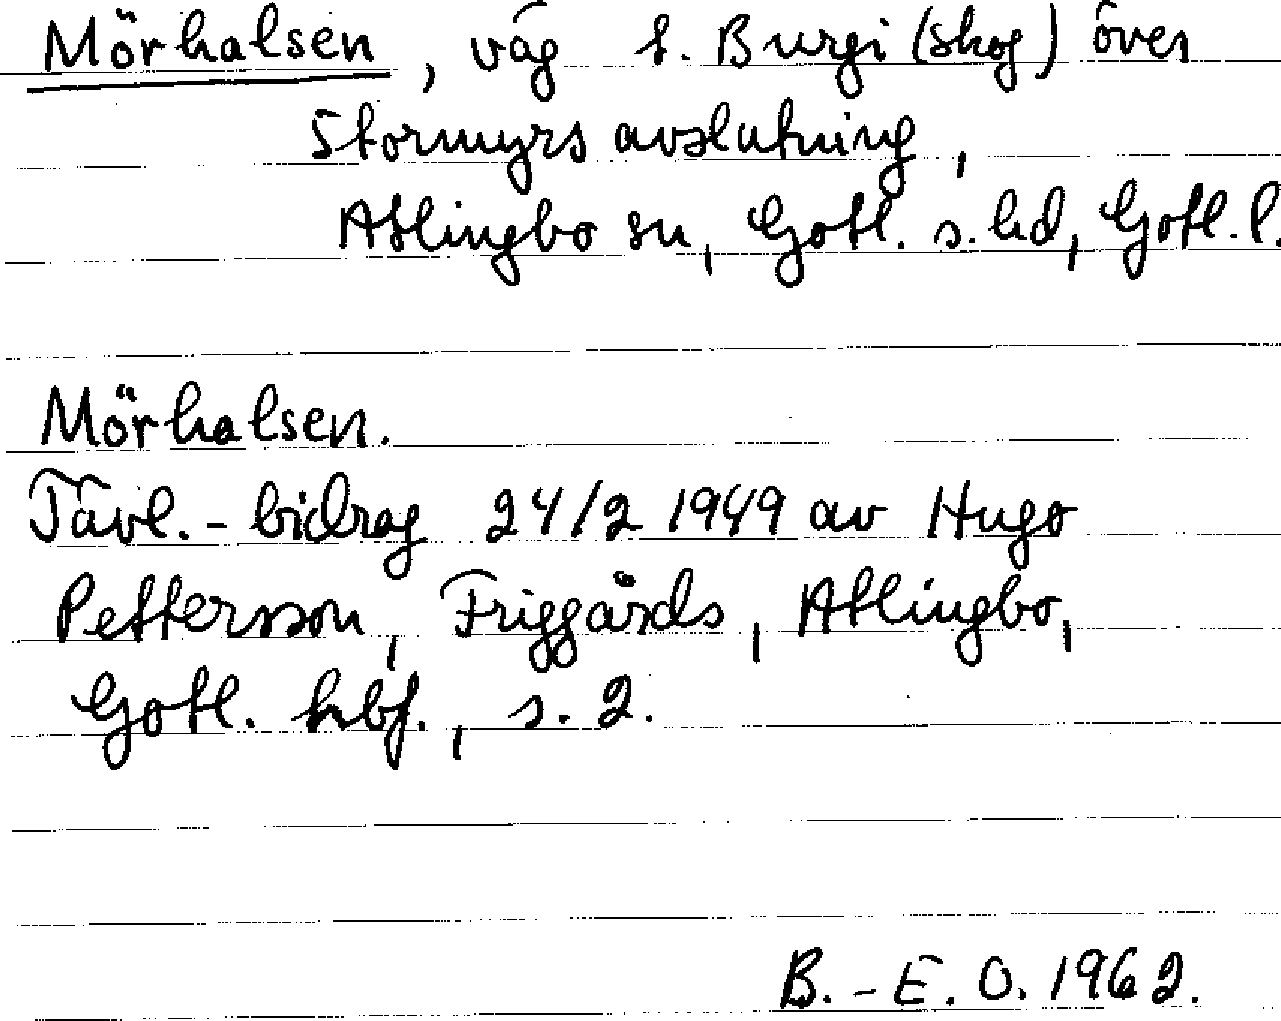 Mörhalsen, väg t. Burgi (skog) över
Stormyrs avslutning,
Atlingbo sn, Gotl. s. hd, Gotl. l.
Mörhalsen.
Tävl.-bidrag 24/2 1949 av Hugo
Pettersson, Friggårds, Atlingbo,
Gotl. hbf., s. 2.
B.-E. O. 1962.